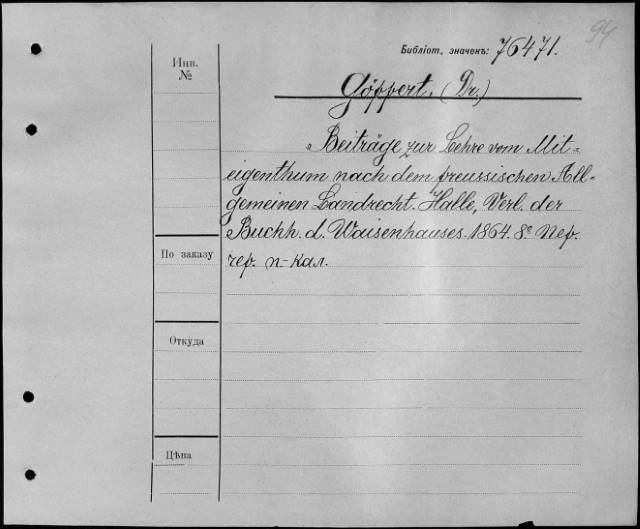 94
Библіот. значенъ: 76471.
Инв.
№
Göppert, (Dr.)
Beiträge zur Lehre vom Mit=
eigenthum nach dem preussischen All=
gemeinen Landrecht. Halle, Verl. der
Buchh. d. Waisenhauses. 1864. 8º
По заказу
n-кал.
Откуда
Цѣна